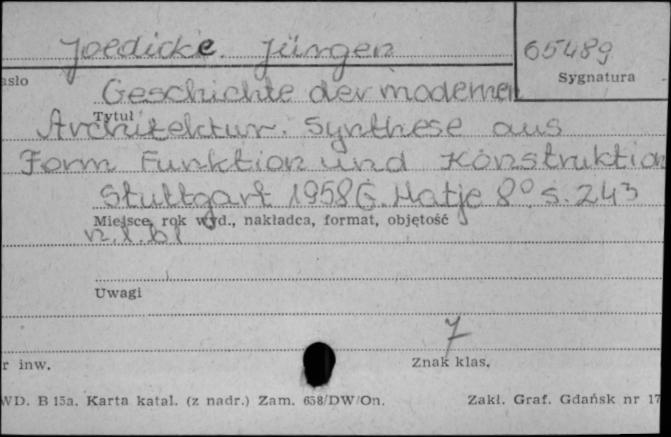 Joedicke. Jürgen
65489
asło
Sygnatura
Geschichte der modernen
Tytuł
Architektur. Synthese aus
Form Funktion und Konstruktion
Stuttgart 1958 G. Hatje 8° s. 243
Miejsce, rok wyd., nakładca, format, objętość
n. l. bl
Uwagi
7
r inw.
Znak klas.
WD. B 15a. Karta katal. (z nadr.) Zam. 658/DW/On.
Zakł. Graf. Gdańsk nr 17